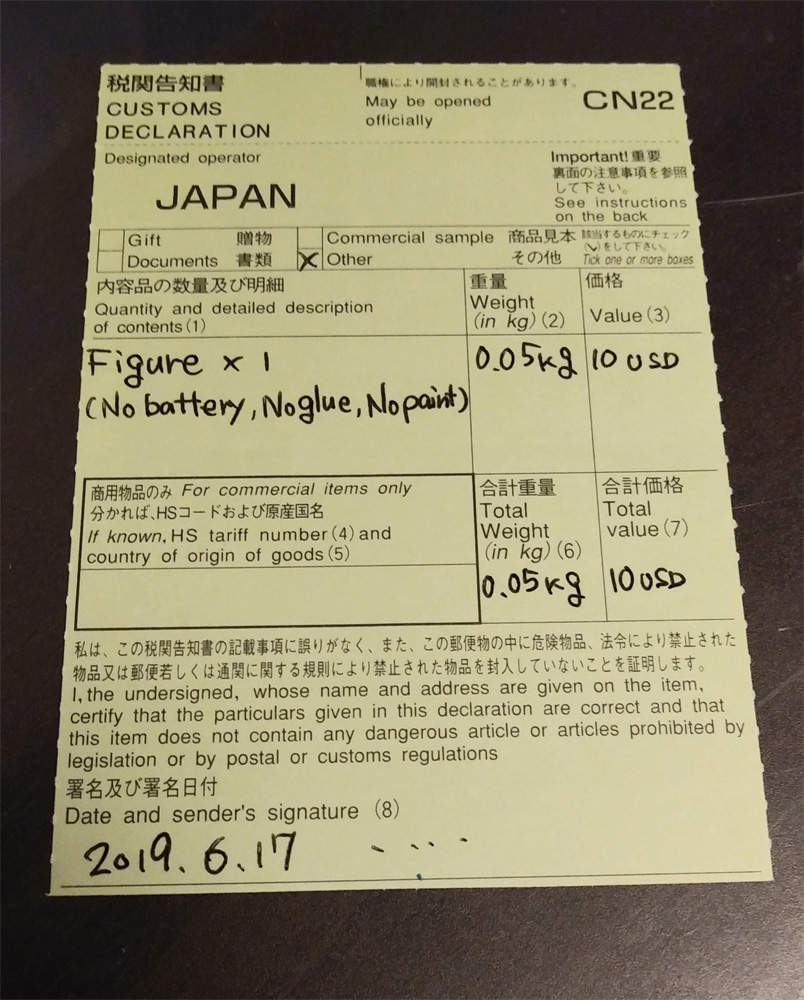 税関告知書
CUSTOMS
DECLARATION
職権により開封されることがあります。
May be opened
officially
CN22
Designated operator
JAPAN
Important! 重要
裏面の注意事項を参照
して下さい。
See instructions
on the back
Gift 贈物
Documents 書類
Commercial sample 商品見本
Other その他
該当するものにチェック
(✓)をして下さい。
Tick one or more boxes
内容品の数量及び明細
Quantity and detailed description
of contents(1)
重量
Weight
(in kg)(2)
価格
Value(3)
Figure x 1
(No battery, No glue, No paint)
0.05kg
10 USD
商用物品のみ For commercial items only
分かれば、HSコードおよび原産国名
If known, HS tariff number(4)and
country of origin of goods(5)
合計重量
Total
Weight
(in kg)(6)
0.05kg
合計価格
Total
value(7)
10 USD
私は、この税関告知書の記載事項に誤りがなく、また、この郵便物の中に危険物品、法令により禁止された
物品又は郵便若しくは通関に関する規則により禁止された物品を封入していないことを証明します。
I, the undersigned, whose name and address are given on the item,
certify that the particulars given in this declaration are correct and that
this item does not contain any dangerous article or articles prohibited by
legislation or by postal or customs regulations
署名及び署名日付
Date and sender's signature (8)
2019.6.17